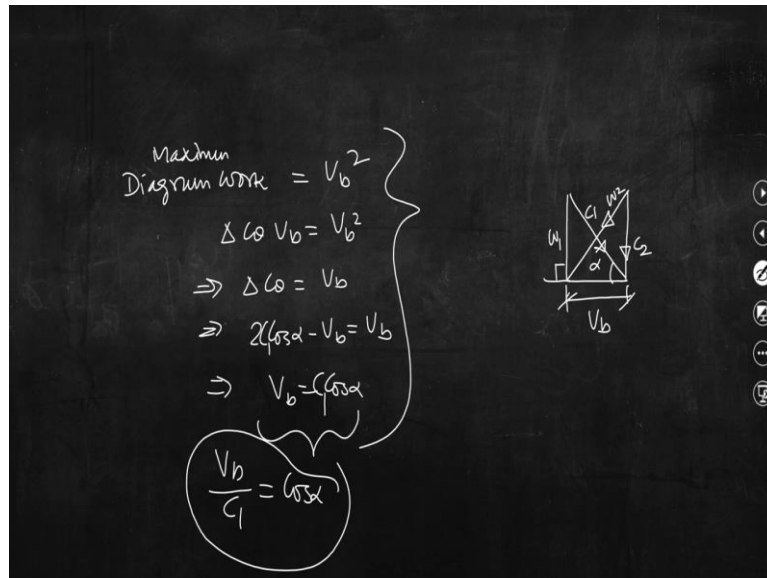 Maximum
Diagram Work = V_b^2
Δ Cω V_b = V_b^2
⇒ Δ Cω = V_b
⇒ 2C_1 Cosα - V_b = V_b
⇒ V_b = C_1 Cosα
V_b / C_1 = Cosα
W_1 C_1 W_2 C_2
α
V_b